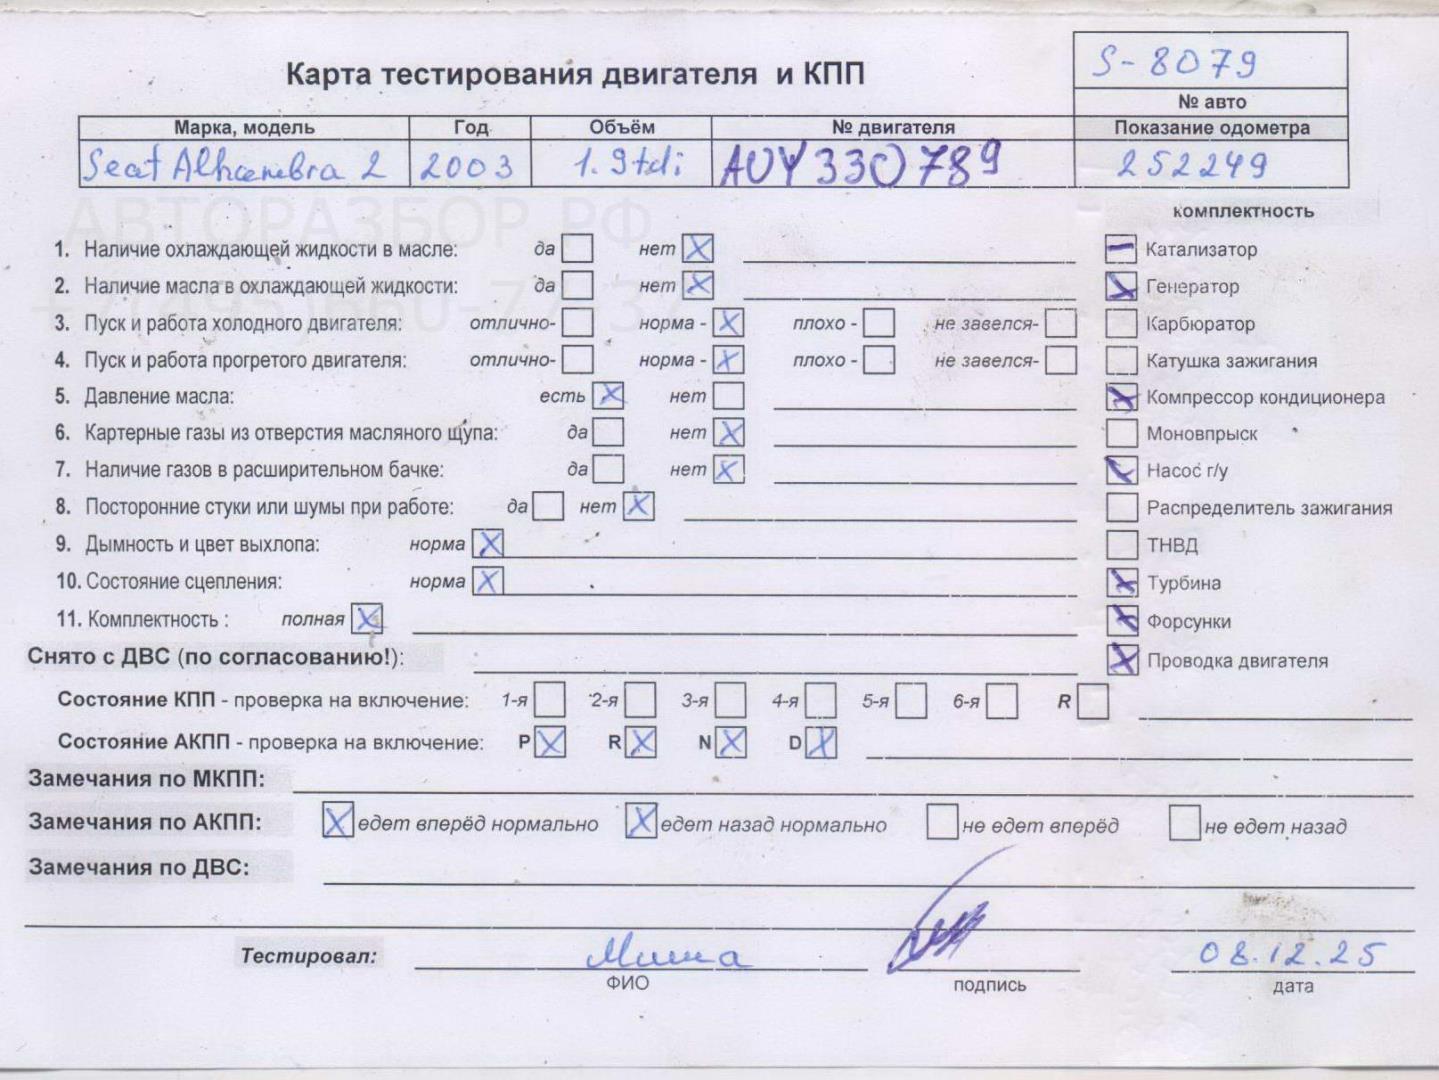 S-8079
Карта тестирования двигателя и КПП
№ авто
Марка, модель Год Объём № двигателя Показание одометра
Seat Alhambra 2 2003 1.9tdi AUY330789 252249
АВТОРАЗБОР.РФ
комплектность
1. Наличие охлаждающей жидкости в масле: да нет X Катализатор
2. Наличие масла в охлаждающей жидкости: да нет X Генератор
+7(495)660-77-37
3. Пуск и работа холодного двигателя: отлично- норма - X плохо - не завелся- Карбюратор
4. Пуск и работа прогретого двигателя: отлично- норма - X плохо - не завелся- Катушка зажигания
5. Давление масла: есть X нет Компрессор кондиционера
6. Картерные газы из отверстия масляного щупа: да нет X Моновпрыск
7. Наличие газов в расширительном бачке: да нет X Насос г/у
8. Посторонние стуки или шумы при работе: да нет X Распределитель зажигания
9. Дымность и цвет выхлопа: норма X ТНВД
10. Состояние сцепления: норма X Турбина
11. Комплектность : полная X Форсунки
Снято с ДВС (по согласованию!): Проводка двигателя
Состояние КПП - проверка на включение: 1-я 2-я 3-я 4-я 5-я 6-я R
Состояние АКПП - проверка на включение: P X R X N X D X
Замечания по МКПП:
Замечания по АКПП: X едет вперёд нормально X едет назад нормально не едет вперёд не едет назад
Замечания по ДВС:
Тестировал: Миша 08.12.25
ФИО подпись дата